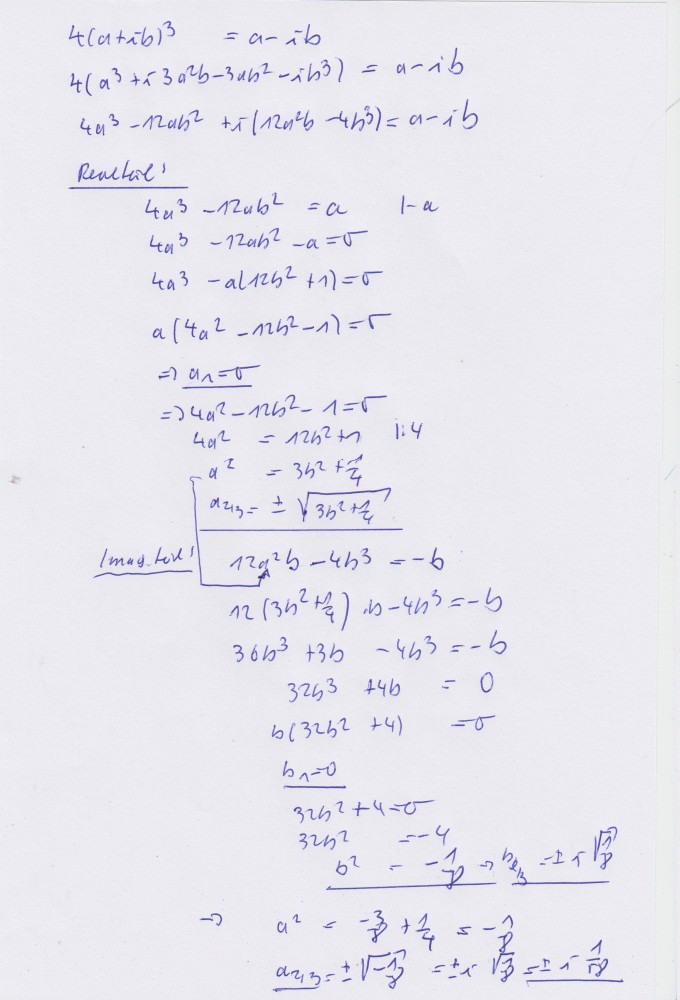 4(a+ib)³ = a-ib
4(a³ + i 3a²b - 3ab² - ib³) = a-ib
4a³ - 12ab² + i(12a²b - 4b³) = a-ib
Realteil:
4a³ - 12ab² = a |-a
4a³ - 12ab² - a = 0
4a³ - a(12b² + 1) = 0
a(4a² - 12b² - 1) = 0
=> a₁ = 0
=> 4a² - 12b² - 1 = 0
4a² = 12b² + 1 |:4
a² = 3b² + 1/4
a₂,₃ = ± √(3b² + 1/4)
Imag.teil: 12a²b - 4b³ = -b
12(3b² + 1/4)·b - 4b³ = -b
36b³ + 3b - 4b³ = -b
32b³ + 4b = 0
b(32b² + 4) = 0
b₁ = 0
32b² + 4 = 0
32b² = -4
b² = -1/8 → b₂/₃ = ± i √(1/8)
→ a² = -3/8 + 1/4 = -1/8
a₂,₃ = ± √(-1/8) = ± i √(1/8) = ± i 1/√8